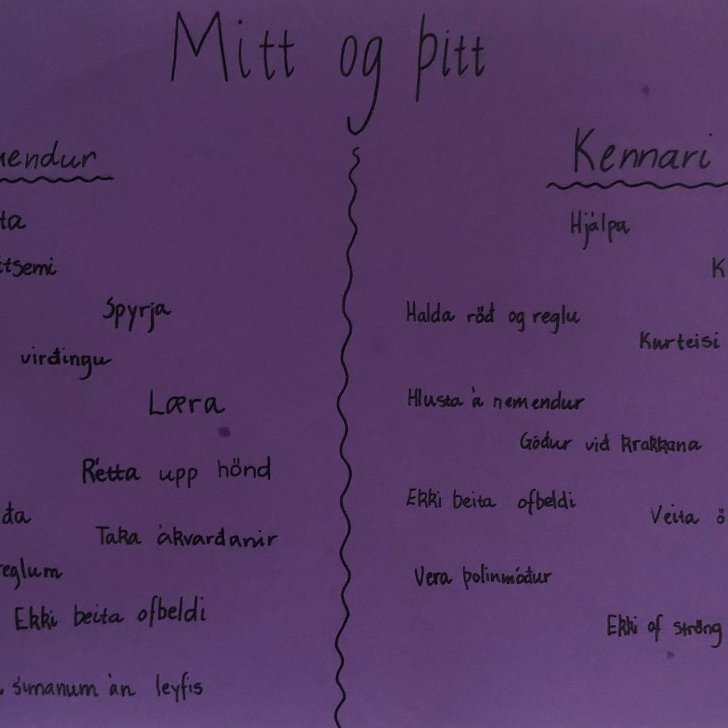 Mitt og þitt
nendur
ta
tsemi
Spyrja
virðingu
Læra
Rétta upp hönd
ða
Taka ákvarðanir
reglum
Ekki beita ofbeldi
símanum án leyfis
Kennari
Hjálpa
K
Halda röð og reglu
Kurteisi
Hlusta á nemendur
Góður við krakkana
Ekki beita ofbeldi
Veita ö
Vera þolinmóður
Ekki of ströng